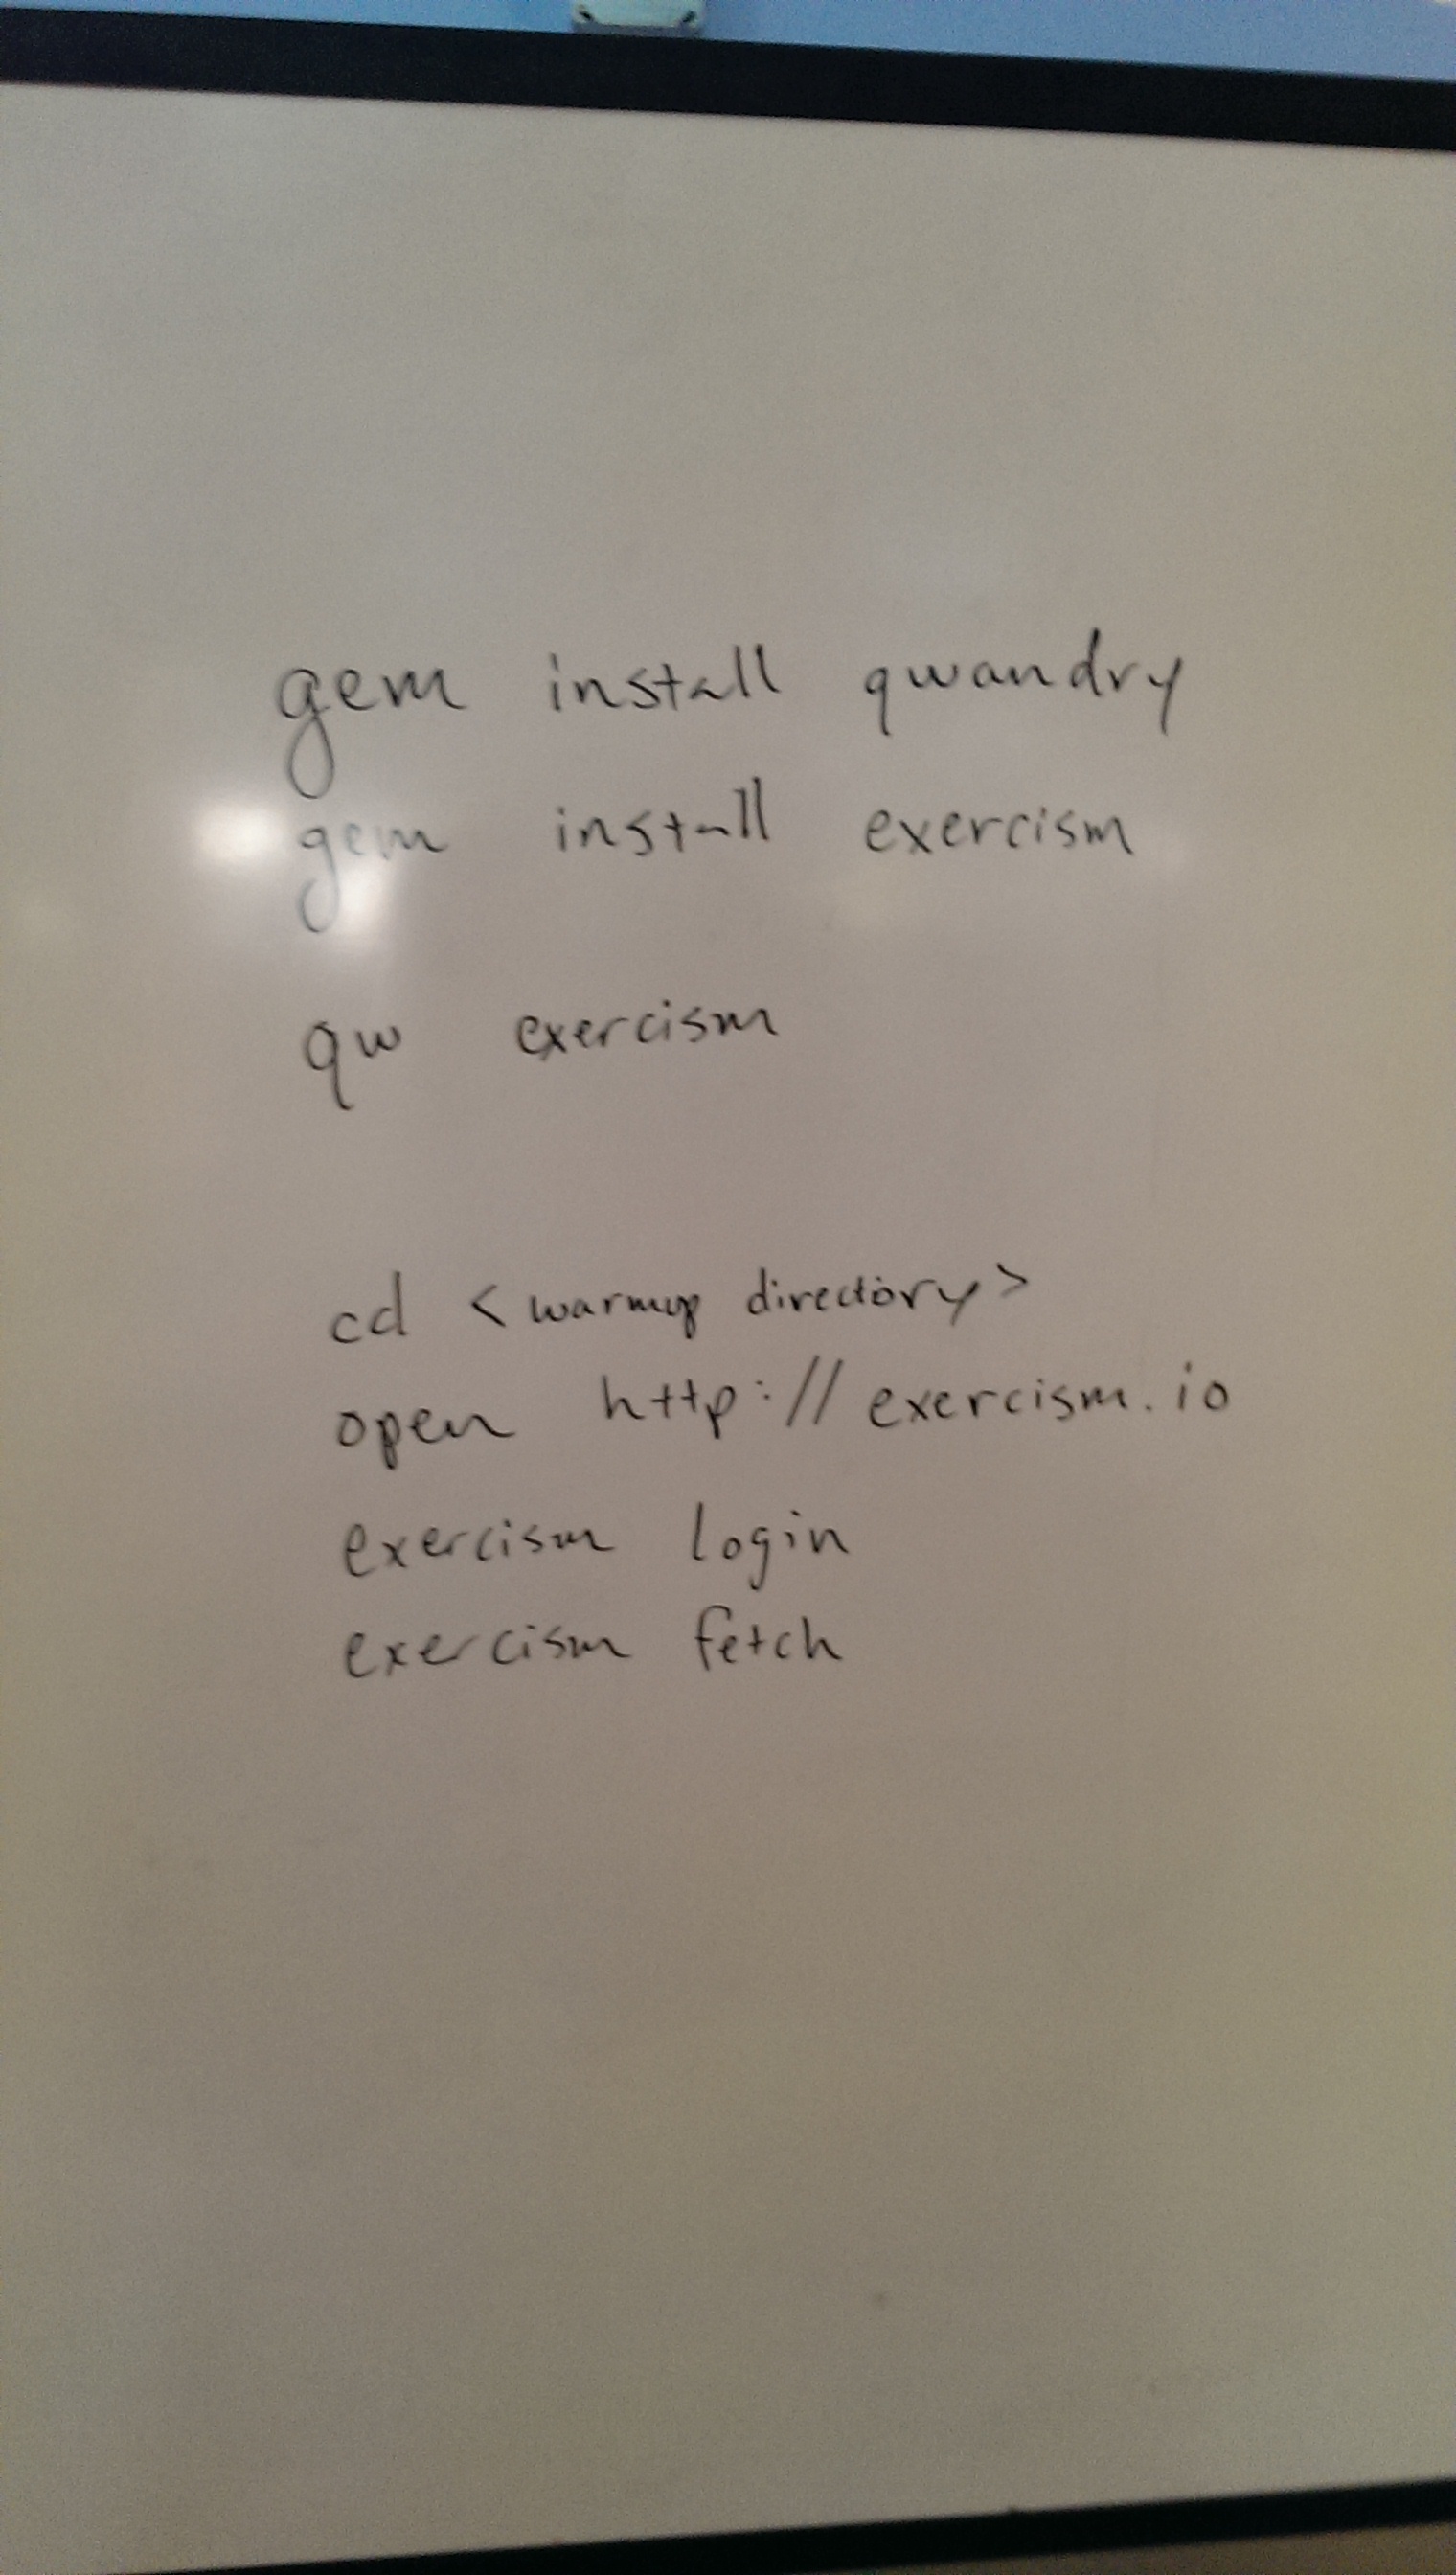 gem install qwandry
gem install exercism
qw exercism
cd <warmup directory>
open http://exercism.io
exercism login
exercism fetch